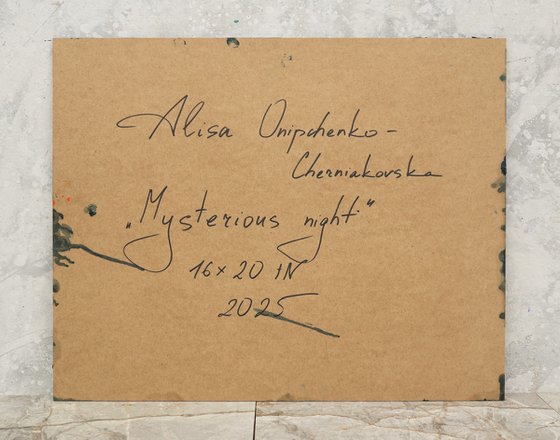 Alisa Onipchenko-
Cherniakovska
„Mysterious night“
16×20 IN
2025